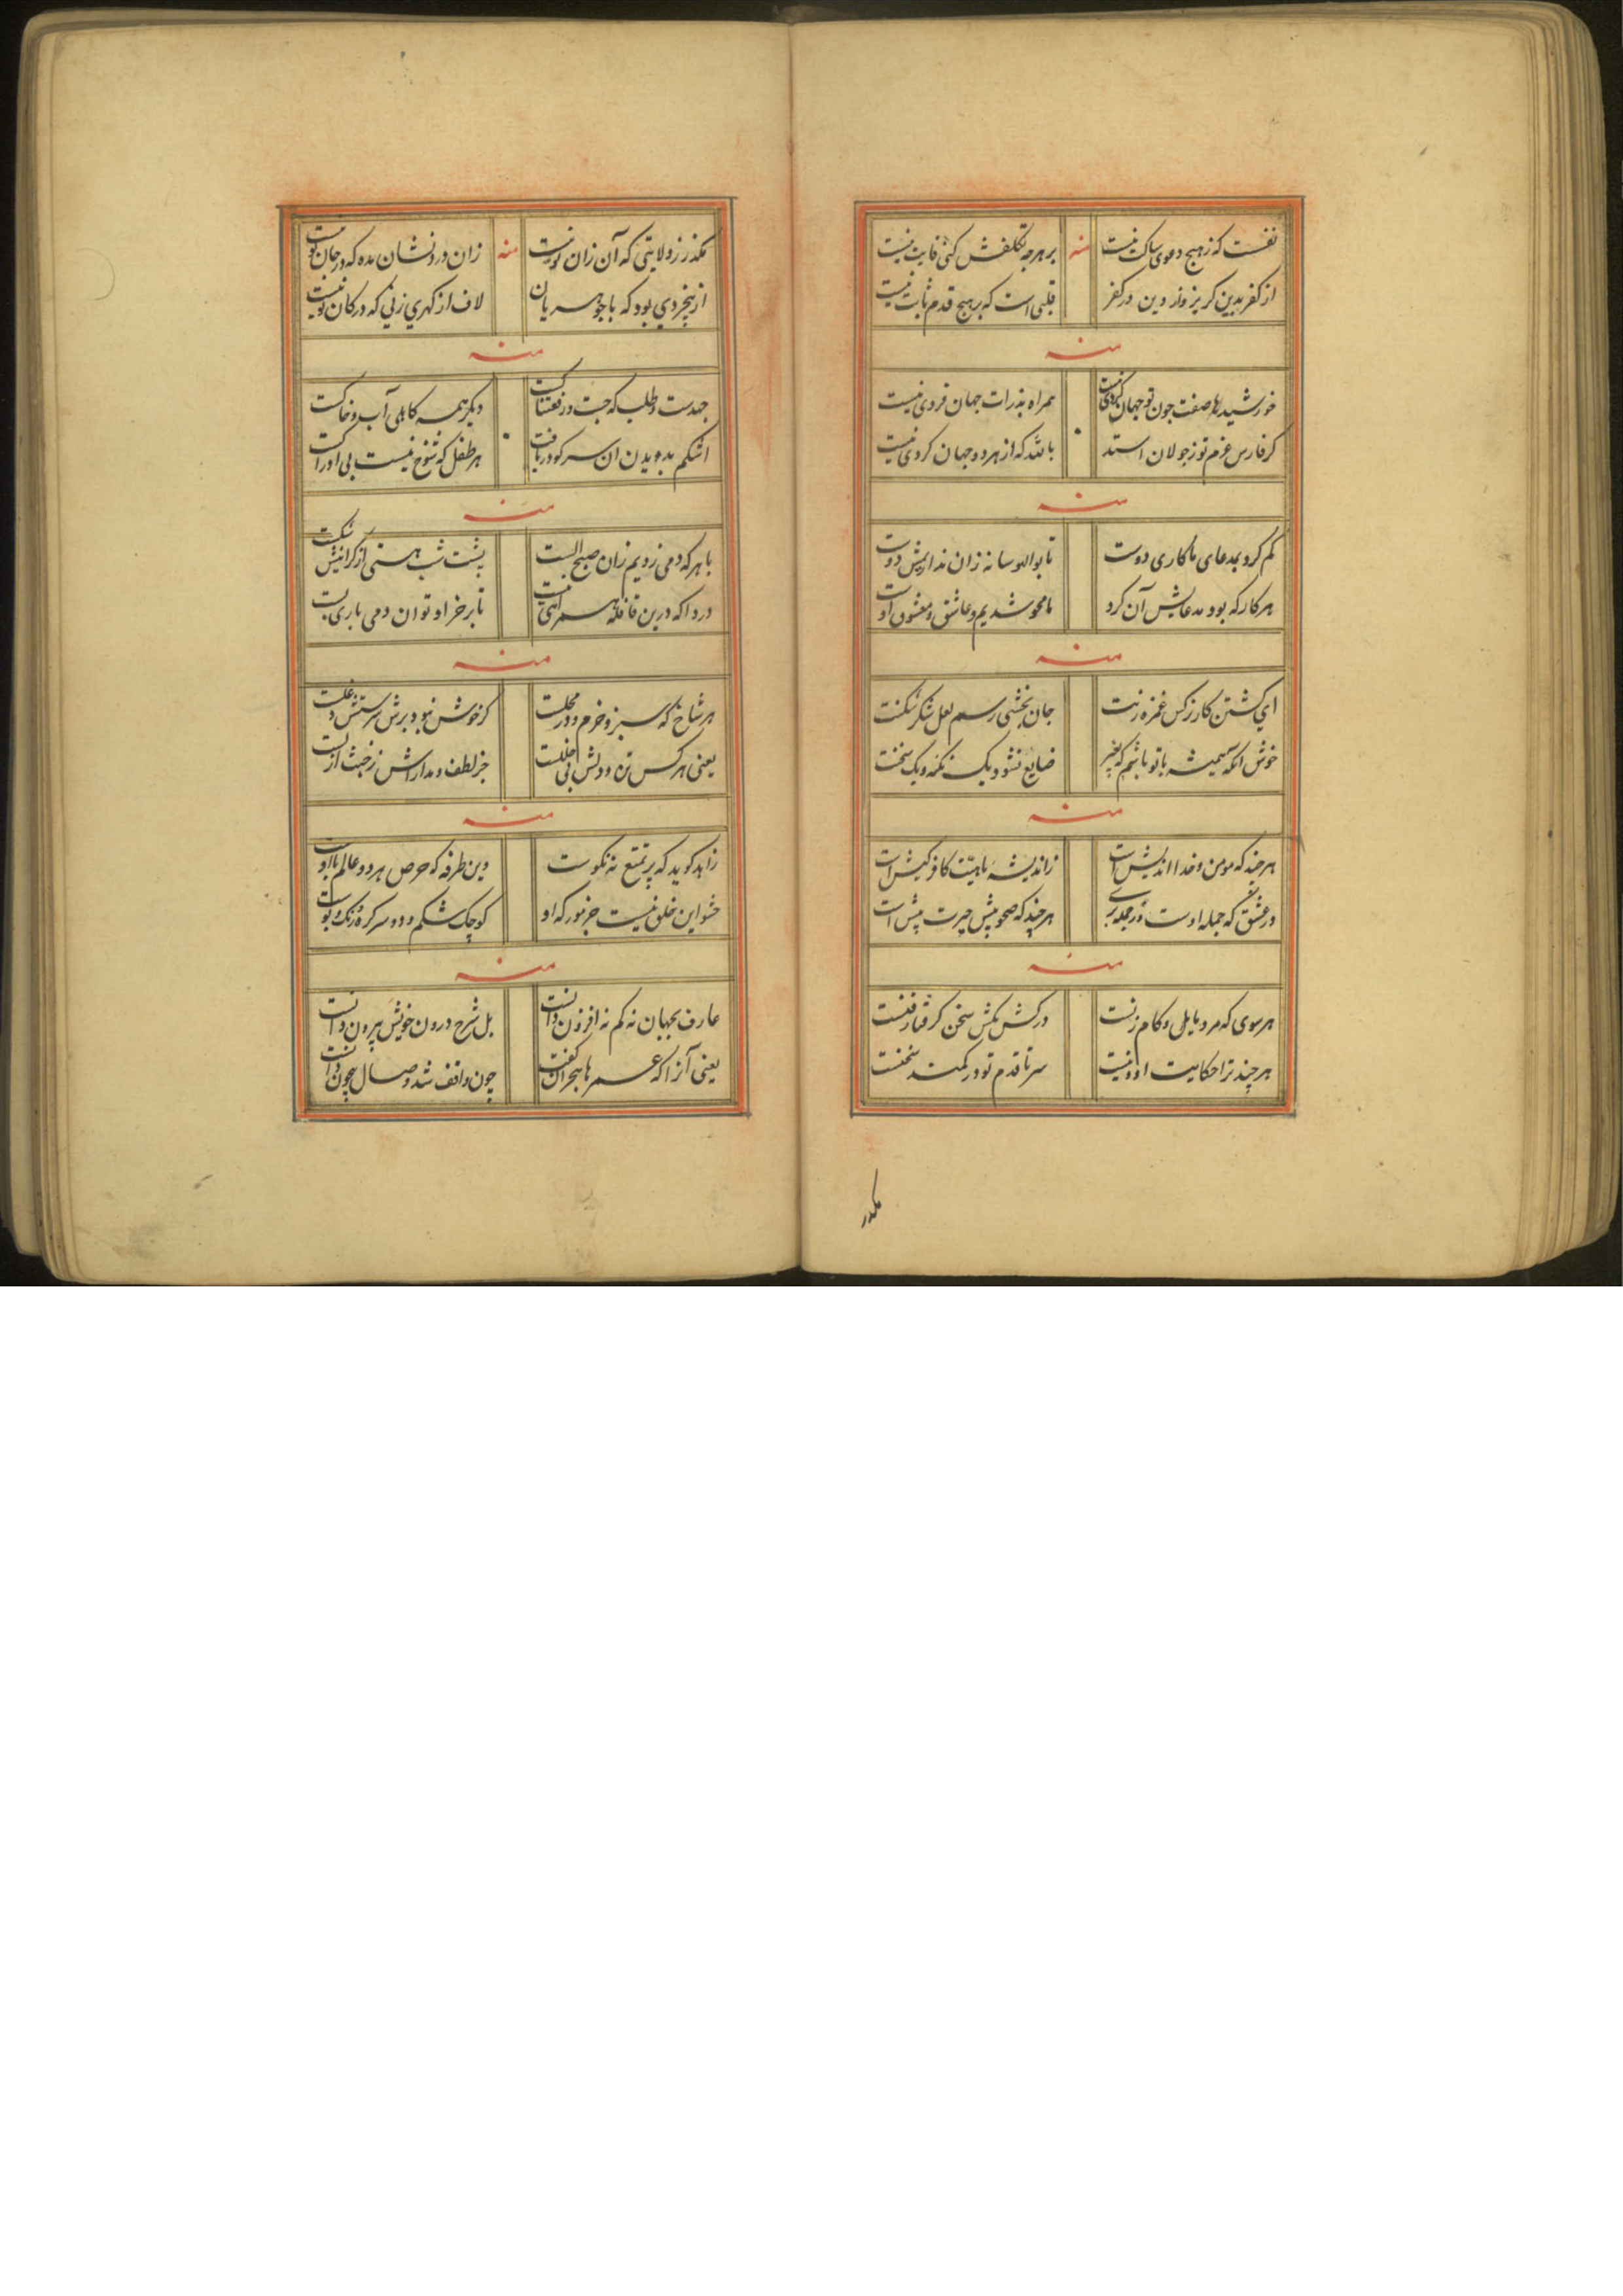 نفست که ز هیچ دعوی ساکت نیست منه بر هرچه تکلفش کنی فایت نیست
از کفر بدین کریزد از دین در کفر قلبی است که بر هیچ قدم ثابت نیست
منه
خورشید صفت چون تو جهان نیست همراه بذرات جهان فردی نیست
کر فارس عزم تو ز جولان استد بالله که از هر دو جهان کردی نیست
منه
کم کرد بمدعای ما کاری دوست تا بوالهوسانه زان نداریمش دوست
هر کار که بود مدعایش آن کرد ما محو شدیم و عاشق و معشوق اوست
منه
ای کشتن کار نرکس غمزه زنت جان بخشی رسم لعل شکر شکنت
خوش آنکه همیشه با تو باشم که بخیر ضایع نشود یک نکه و یک سخنت
منه
هر چند که مومن و خدا اندیش است ز اندیشه ماهیت کافر کیش است
در عشق که جمله اوست هر چند که صحو بیش حیرت بیش است
منه
هر سوی که مرد مایلی و کام زنست در کش مکش سخن کرفتار فنست
هر چند ترا حکایت او نیست سر تا قدم تو در کمند سخنست
مکذر
مکذر ز ولایتی که آن زان تو نیست منه زان درد نشان مده که در جان تو نیست
از بیخردی بود که با جوهریان لاف از کهری زنی که در کان تو نیست
منه
جهدست و طلب که جست در رفعتناکست دیکر همه کاهلی آب و خاکست
اشکم بدویدن آن سر کو دریافت هر طفل که شوخ نیست بی ادراکست
منه
با هر که دمی زدیم زان صبح الست پشت شب هستی از کرانیش شکست
دردا که درین قافله همراهی نیست تا بر خر او توان دمی باری بست
منه
هر شاخ که سبز و خرم و در محلست کر خوش نبود برش سرشتش دغلست
یعنی هر کس که جز لطف و مداراش ز خبث ازلست
منه
زاهد کوید که پر تمتع نه نکوست وین طرفه که حرص هر دو عالم با اوست
حشو این خلق نیست جز مور که او کوچک شکم و دو سر کره و زنک و بوست
منه
عارف بجهان نه کم نه افزون دانست بل شرح درون خویش بیرون دانست
یعنی آنرا که عمرها هجران کفت چون واقف شد وصال بیچون دانست